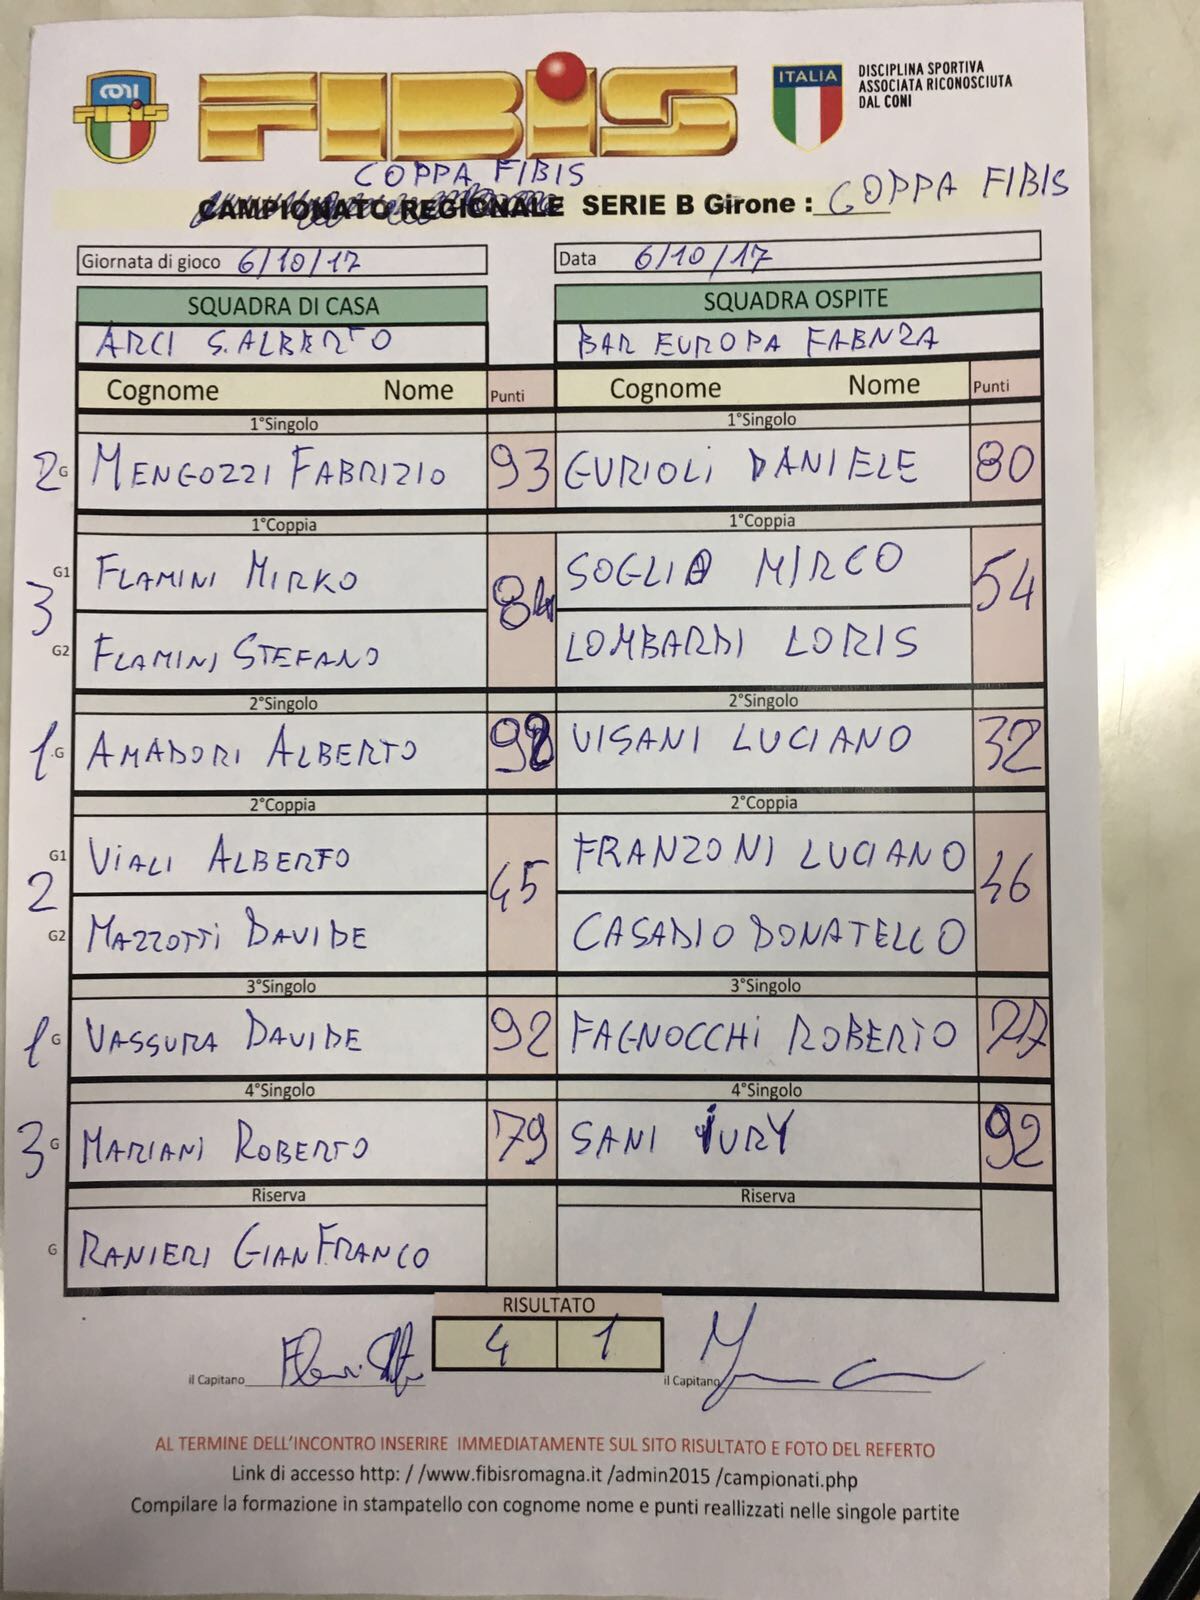 CONI
FIBIS
FIBIS
ITALIA
DISCIPLINA SPORTIVA
ASSOCIATA RICONOSCIUTA
DAL CONI
COPPA FIBIS
CAMPIONATO REGIONALE SERIE B Girone : COPPA FIBIS
Giornata di gioco 6/10/17 Data 6/10/17
SQUADRA DI CASA SQUADRA OSPITE
ARCI S.ALBERTO BAR EUROPA FAENZA
Cognome Nome Punti Cognome Nome Punti
1°Singolo 1°Singolo
2 G MENGOZZI FABRIZIO 93 GURIOLI DANIELE 80
1°Coppia 1°Coppia
G1 FLAMINI MIRKO SOGLIA MIRCO
3 84 54
G2 FLAMINI STEFANO LOMBARDI LORIS
2°Singolo 2°Singolo
1 G AMADORI ALBERTO 92 VISANI LUCIANO 32
2°Coppia 2°Coppia
G1 VIALI ALBERTO FRANZONI LUCIANO
2 45 46
G2 MAZZOTTI DAVIDE CASADIO DONATELLO
3°Singolo 3°Singolo
1 G VASSURA DAVIDE 92 FAGNOCCHI ROBERTO 77
4°Singolo 4°Singolo
3 G MARIANI ROBERTO 79 SANI YURY 92
Riserva Riserva
G RANIERI GIANFRANCO
RISULTATO
4 1
il Capitano il Capitano
AL TERMINE DELL'INCONTRO INSERIRE IMMEDIATAMENTE SUL SITO RISULTATO E FOTO DEL REFERTO
Link di accesso http: / /www.fibisromagna.it /admin2015 /campionati.php
Compilare la formazione in stampatello con cognome nome e punti reallizzati nelle singole partite